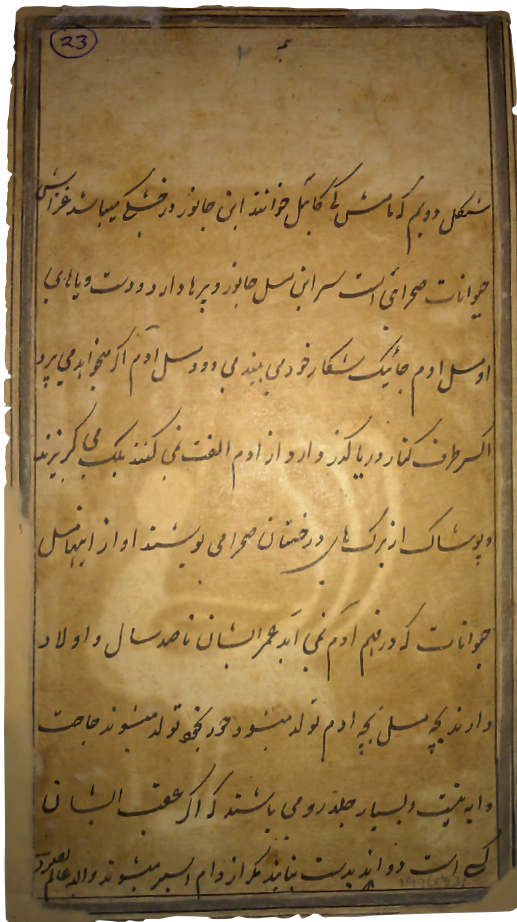 23
۲
شکل دویم که نامش کابل خوانند این جانور در خشکی میباشد غزایش
حیوانات صحرائی است سر این مسل جانور و پرها دارد و دست و پاهای
او مسل ادم جائیکه شکار خود می بیند می دود مسل آدم اگر میخواهد می پرد
اکسر طرف کنار دریا گذر دارد از ادم الفت نمی کنند بلک می گریزند
و پوشاک از برک های درختان صحرا می پوشند اواز اینها مسل
حیوانات که در فهم آدم نمی آید عمر ایشان تا صد سال و اولاد
دارند بچه مسل بچه ادم تولد میشود خود بخود تولد میشوند حاجت
دایه نیست و بسیار جلد رو می باشند که اگر عقب ایشان
کسے است دواند بدست نیایند مگر از دام اسیر میشوند والله عالم